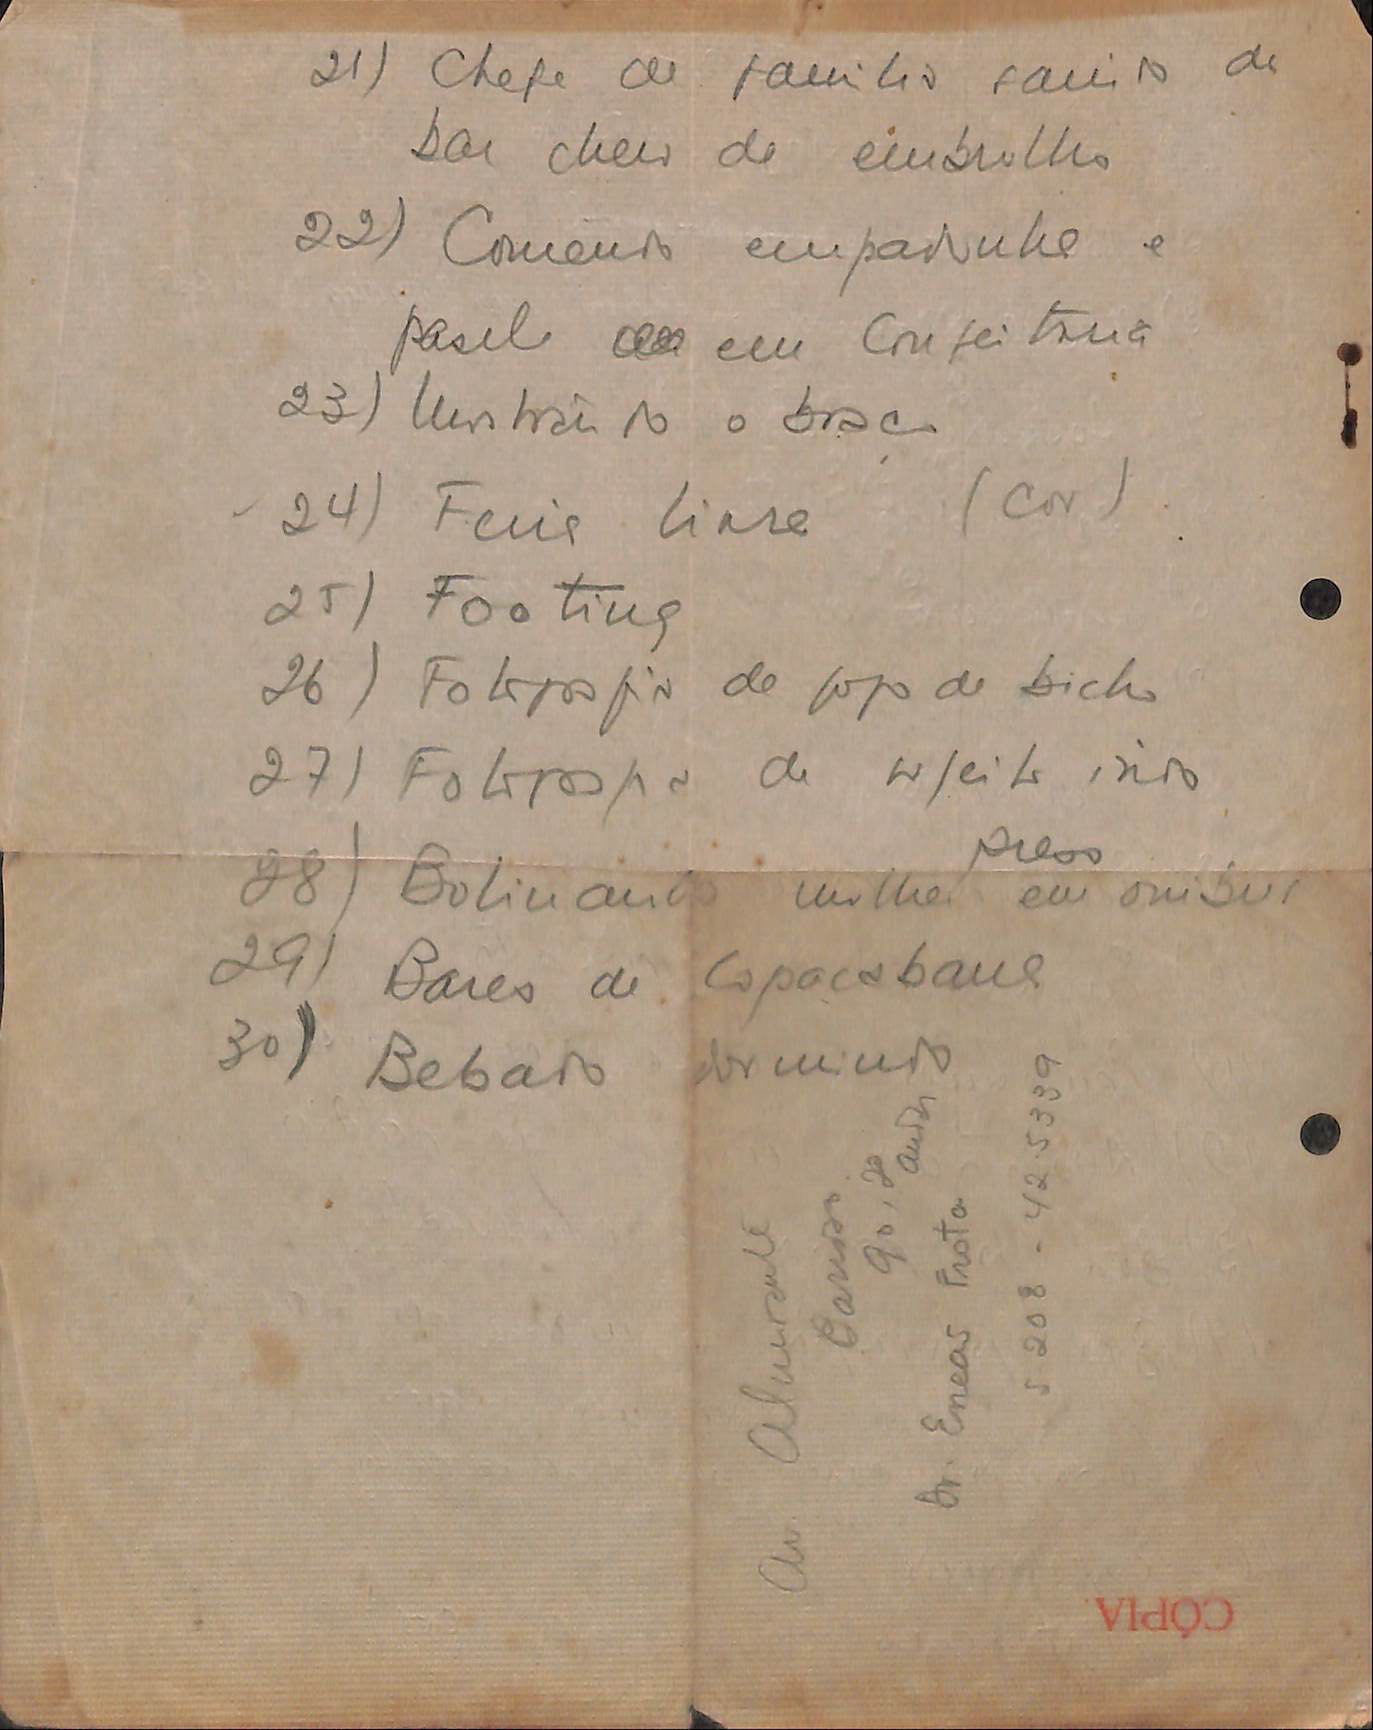 21) Chefe de familia saindo de
bar cheio de embrulho
22) Comendo empadinha e
pastel em Confeitaria
23) Mostrando o braço
24) Feira livre (Cor)
25) Footing
26) Fotografia de jogo de bicho
27) Fotografia de sujeito indo
preso
28) Bolinando mulher em onibus
29) Bares de Copacabana
30) Bebado dormindo
Av. Almirante
Barroso
90, 2º
andar
Dr. Eneas Frota
5208 - 42.5339
CÓPIA